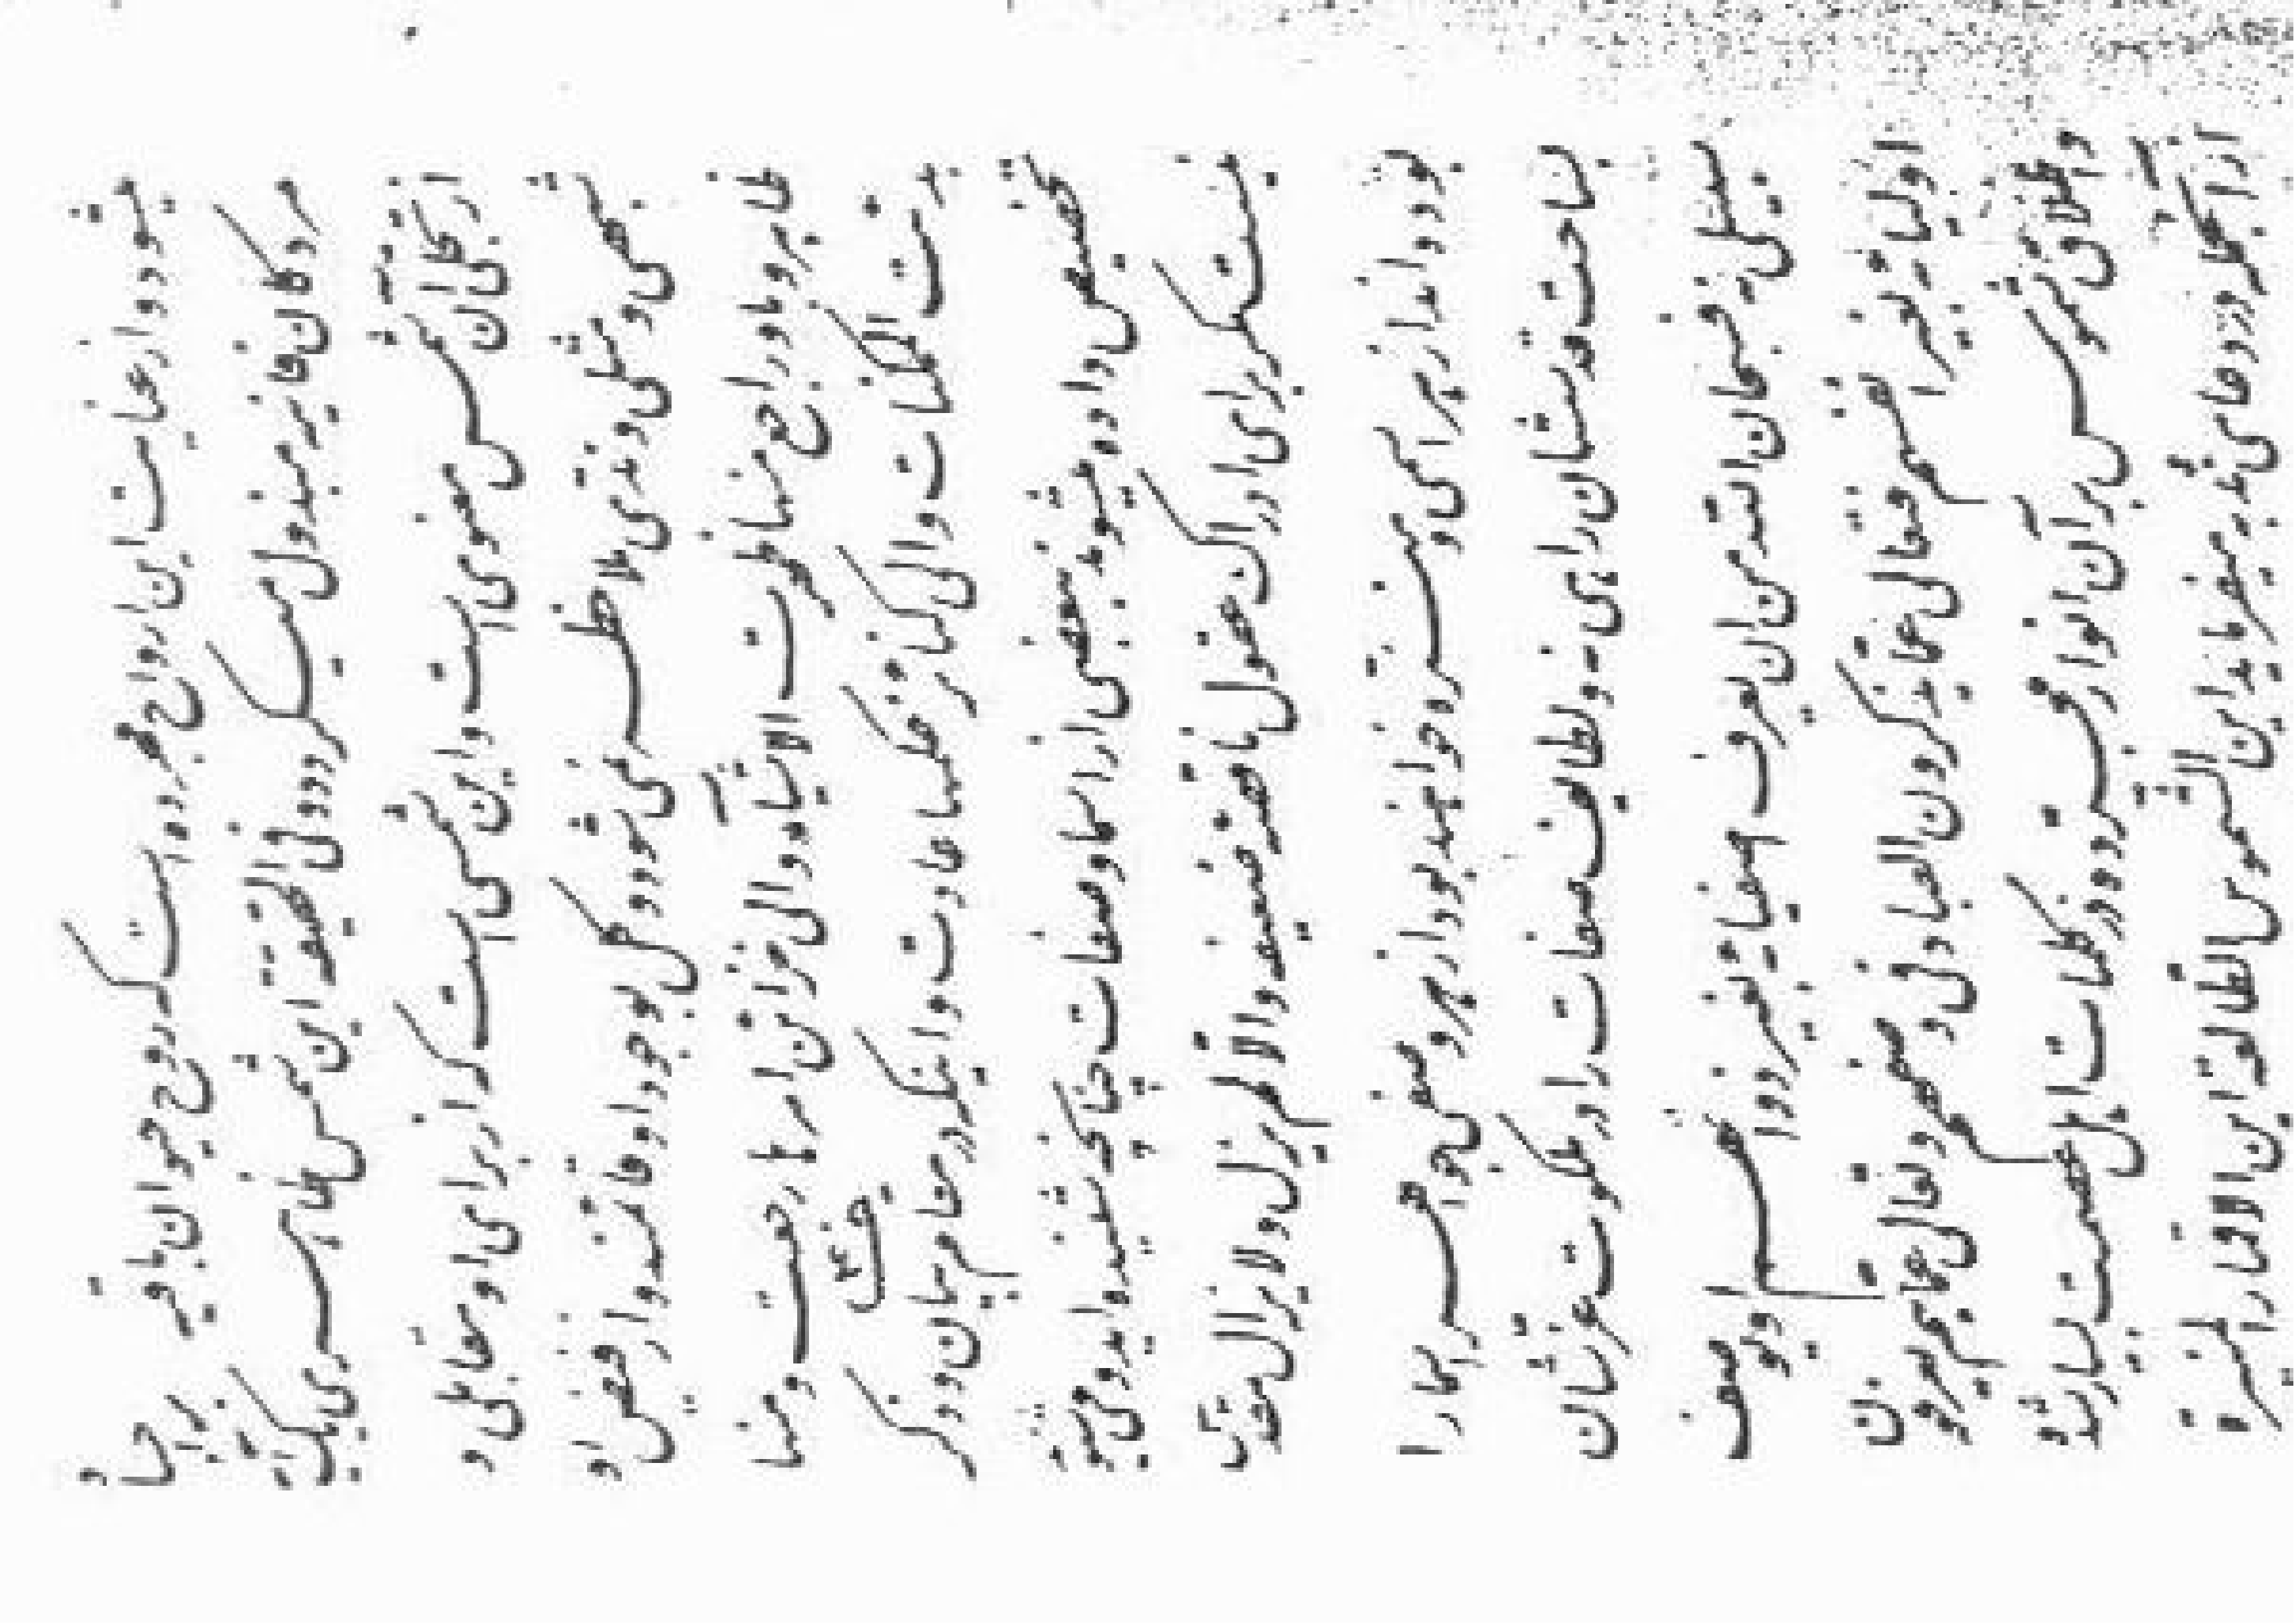 میشود و از عنایت این ارواح مجرده است که روح حیوان باقیه بر اجساد
مردگان فانیه مبذول میگردد و فی الحقیقه این شمس ظاهری یک آیه
از تجلی آن شمس معنوی است و این شمسی است که از برای او مقابلی و
شبهی و مثلی و ندی ملاحظه نمی شود و کل بوجود او قائمند و از فیض او
ظاهر و باو راجع منها ظهرت الاشیاء و الی خزائن امرها رجعت و منها
بدئت الممکنات و الی کنائز حکمها عادت و اینکه در مقام بیان و ذکر
تخصیص داده میشوند ببعضی از اسماء و صفات چنانچه شنیده اید و می شنوید
نیست مگر برای ادراک عقول ناقصه ضعیفه و الا لم یزل و لا یزال مقدس
بوده اند از هر اسمی و منزه خواهند بود از هر وصفی جواهر اسماء را
بساحت قدسشان راهی نه و لطایف صفات را در ملکوت عزشان
سبیلی نه فسبحان الله من ان یعرف اصفیائه بغیر ذواتهم او یوصف
اولیائه بغیر انفسهم فتعالی عما یذکرون العباد فی وصفهم و تعالی عما هم یعرفون
و اطلاق شموس بر آن انوار مجرده در کلمات اهل عصمت بسیار شده
از آنجمله در دعای ندبه میفرماید این الشموس الطالعة این الاقمار المنیرة